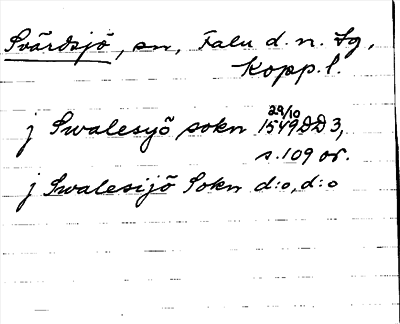 Svärdsjö, sn, Falu d. n. tg,
Kopp. l.
29/10
j Swalesyö sokn 1549 DD 3,
s. 109 or.
j Swalesijö Sokn d:o, d:o